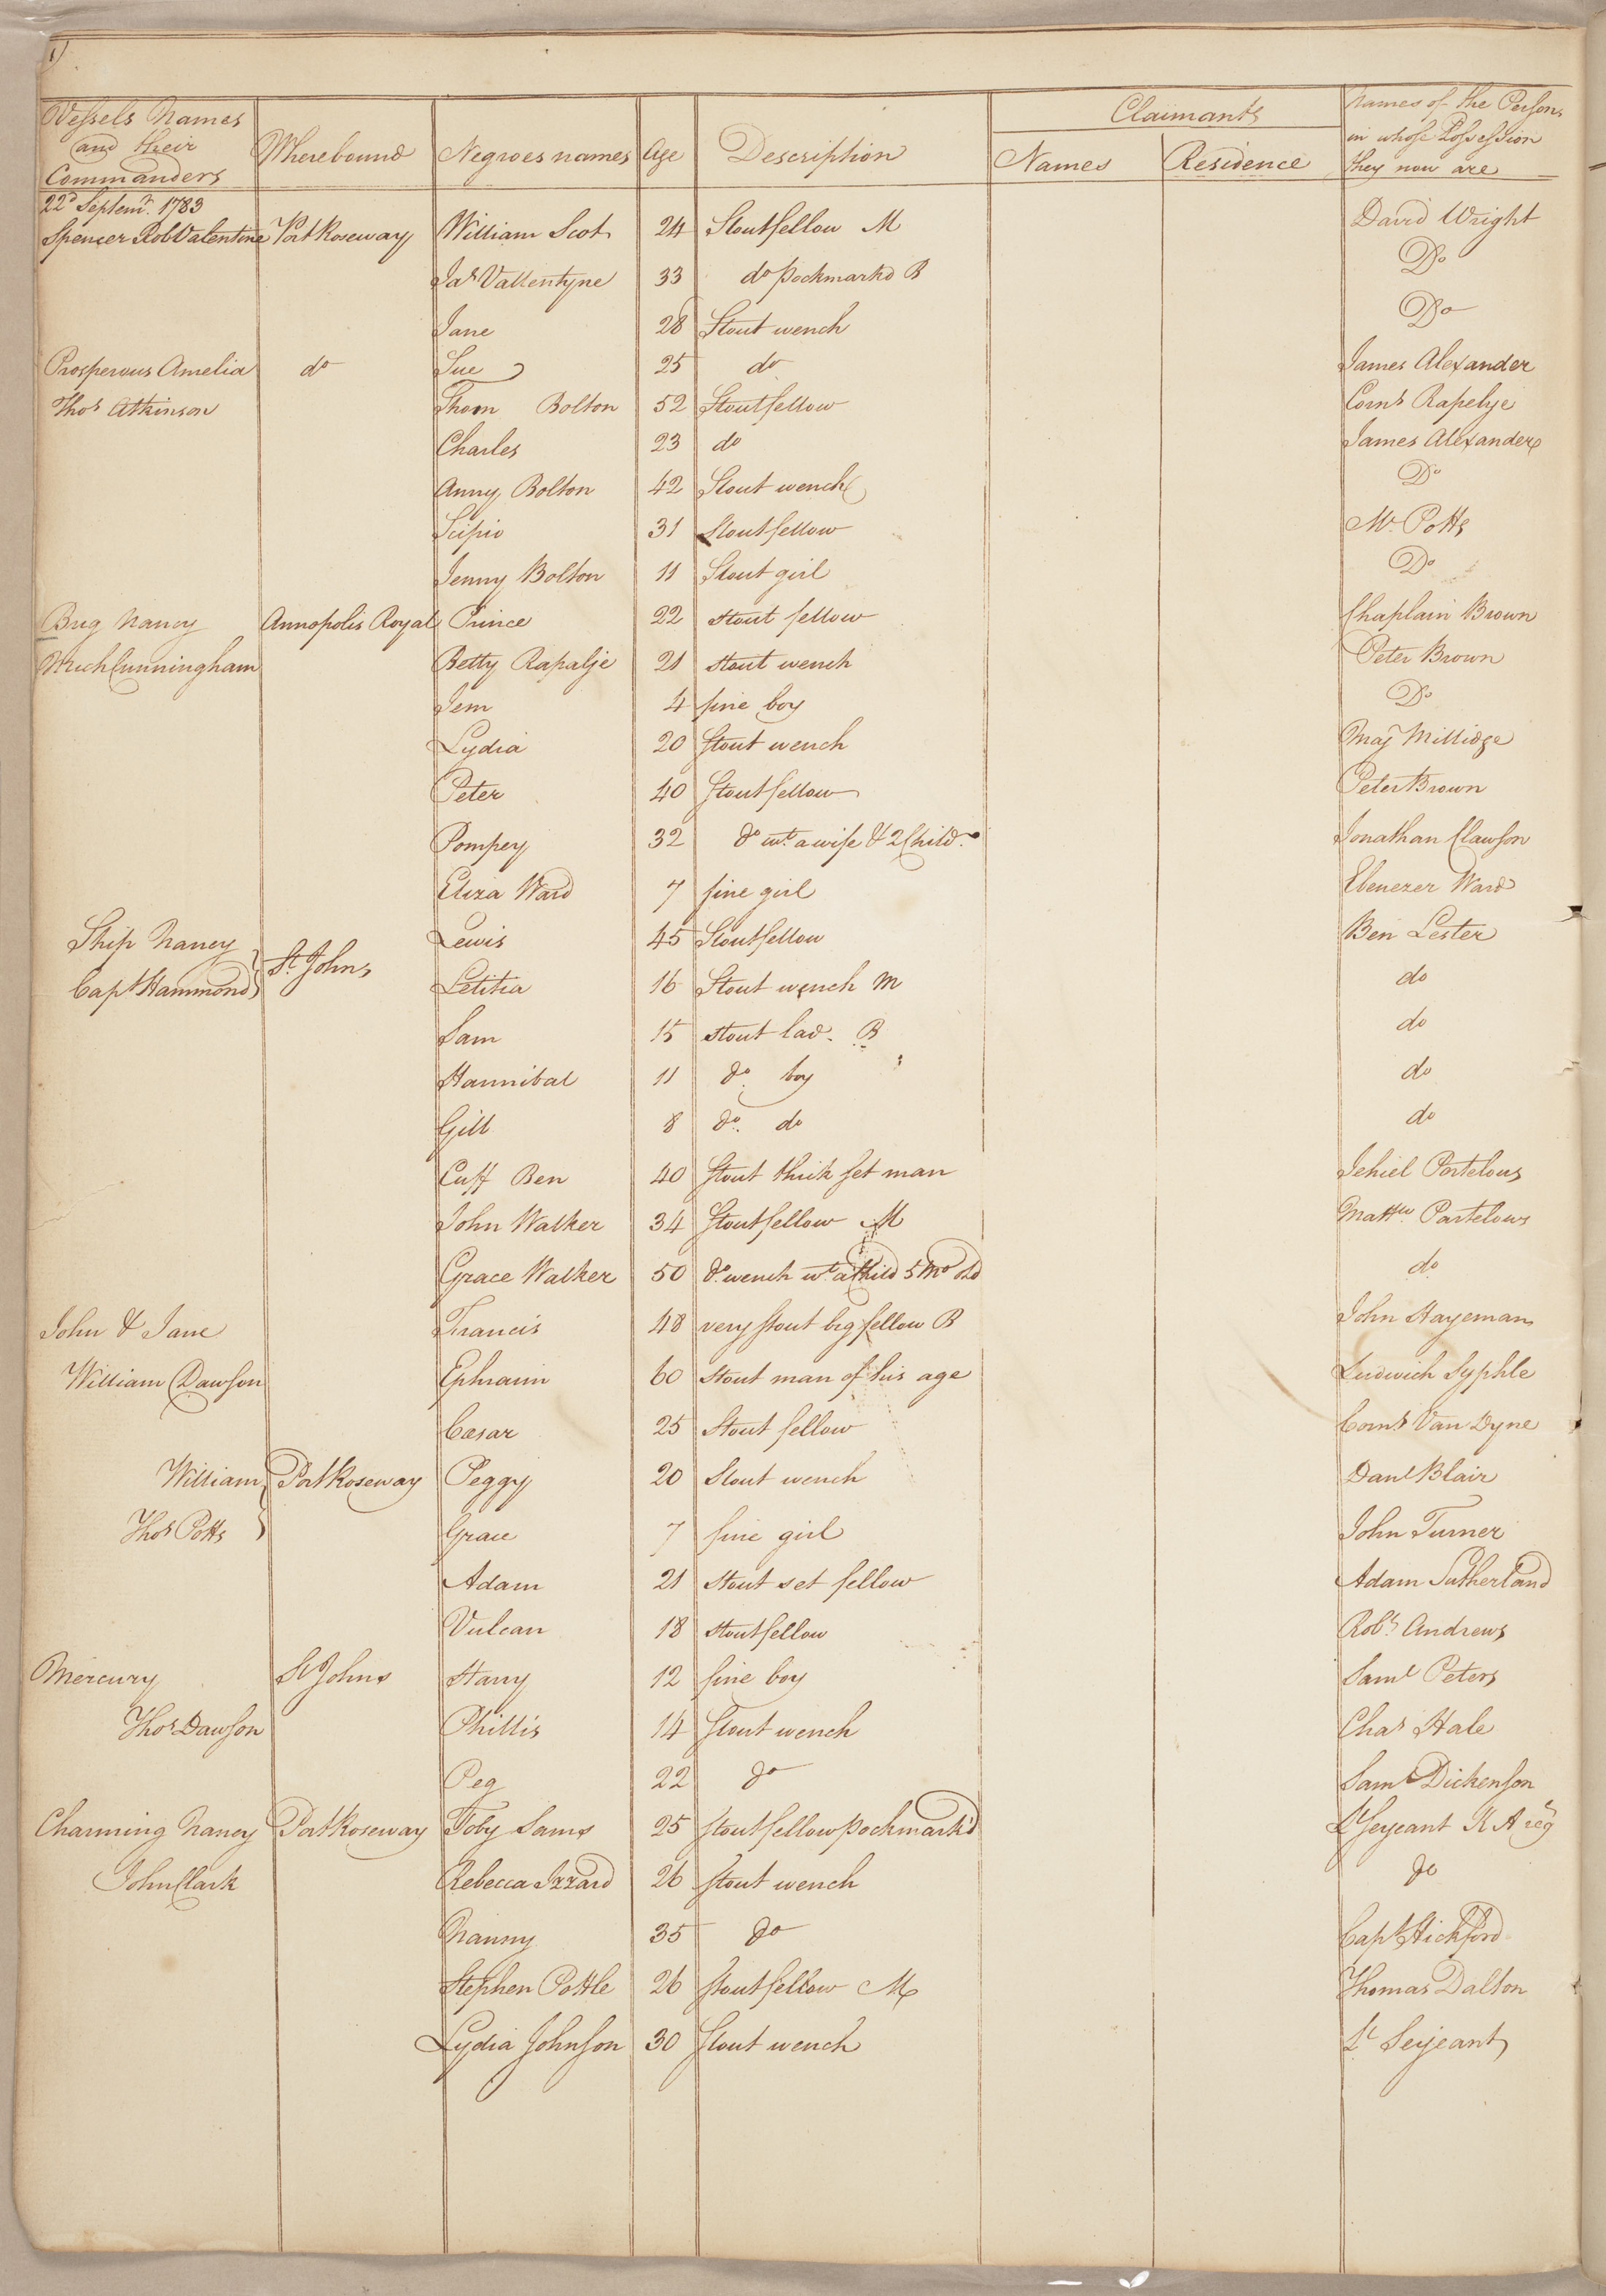 1)
Vessels Names and their Commanders Wherebound Negroes names Age Description Claimants Names Residence Names of the Persons in whose Possession they now are
22d Septemr. 1783
Spencer Rob Valentine Port Roseway William Scot 24 Stout fellow M David Wright
Jas Vallentyne 33 do pockmarkd B Do
Jane 28 Stout wench Do
Prosperous Amelia do Sue 25 do James Alexander
Thos Atkinson Thom Bolton 52 Stout fellow Corns Rapelye
Charles 23 do James Alexander
Anny Bolton 42 Stout wench Do
Scipio 31 Stout fellow Mr. Potts
Jenny Bolton 11 Stout girl Do
Brig Nancy Annopolis Royal Prince 22 stout fellow Chaplain Brown
Mich Cunningham Betty Rapalje 21 stout wench Peter Brown
Jem 4 fine boy Do
Lydia 20 stout wench Maj Millidge
Peter 40 Stout fellow Peter Brown
Pompey 32 do wt. a wife & 2 Child. Jonathan Clawson
Eliza Ward 7 fine girl Ebenezer Ward
Ship Nancy Lewis 45 Stout fellow Ben Lester
Capt Hammond St. Johns Letitia 16 Stout wench M do
Sam 15 stout lad. B do
Hannibal 11 do. boy do
Gill 8 do. do do
Cuff Ben 40 Stout thick set man Jehiel Partelous
John Walker 34 Stout fellow M Mattw. Partelows
Grace Walker 50 do wench wt. a Child 5 Mo old do
John & Jane Francis 48 very stout big fellow B John Hayeman
William Dawson Ephraim 60 Stout man of his age Ludwich Syphle
Cæsar 25 Stout fellow Corns Van Dyne
William Port Roseway Peggy 20 Stout wench Danl Blair
Thos Potts Grace 7 fine girl John Turner
Adam 21 Stout set fellow Adam Sutherland
Vulcan 18 stout fellow Robt. Andrews
Mercury St Johns Harry 12 fine boy Saml Peters
Thos Dawson Phillis 14 Stout wench Chas Hale
Peg 22 do Saml Dickenson
Charming Nancy Port Roseway Toby Sams 25 stout fellow pockmarkd Lt Serjeant R A reg
John Clark Rebecca Izzard 26 stout wench do
Nanny 35 do Capt Hickford
Stephen Pottle 26 stout fellow M Thomas Dalton
Lydia Johnson 30 Stout wench Lt Serjeant